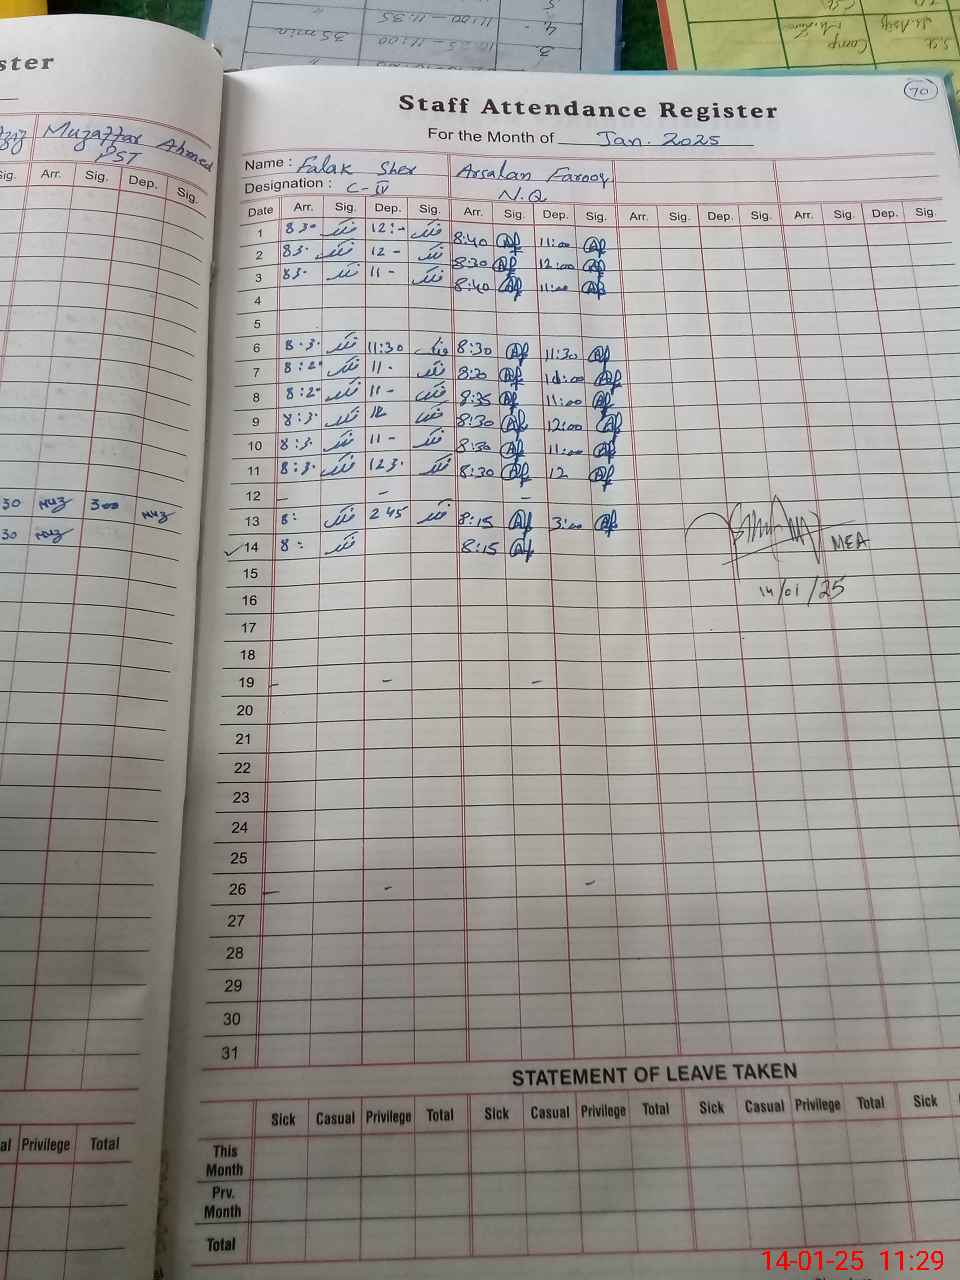 ster
Muzaffar Ahmed
PST
Sig. Arr. Sig. Dep. Sig.
30 3 00
30
al Privilege Total
3. 10:25 - 11:00 35 min
4. 11:00 - 11:35 "
5
Camp
70
Staff Attendance Register
For the Month of Jan. 2025
Name : Falak Sher Arsalan Farooq
Designation : C-IV N.Q
Date Arr. Sig. Dep. Sig. Arr. Sig. Dep. Sig. Arr. Sig. Dep. Sig. Arr. Sig. Dep. Sig.
1 8 30 فلک 12:- فلک 8:40 Af 11:00 Af
2 83. فلک 12 - فلک 8:30 Af 12:00 Af
3 83. فلک 11 - فلک 8:40 Af 11:00 Af
4
5
6 8.3. فلک 11:30 فلک 8:30 Af 11:30 Af
7 8:2. فلک 11 - فلک 8:30 Af Af
8 8:2. فلک 11 - فلک 8:35 Af 11:00 Af
9 8:3. فلک 12 فلک 8:30 Af 12:00 Af
10 8:3. فلک 11 - فلک 8:30 Af 11:00 Af
11 8:3. فلک 123. فلک 8:30 Af 12 Af
12 - - -
13 8: فلک 2 45 فلک 8:15 Af 3:00 Af
14 8: فلک 8:15 Af MEA
15 14/01/25
16
17
18
19 - - -
20
21
22
23
24
25
26 - - -
27
28
29
30
31
STATEMENT OF LEAVE TAKEN
Sick Casual Privilege Total Sick Casual Privilege Total Sick Casual Privilege Total Sick
This Month
Prv. Month
Total
14-01-25 11:29